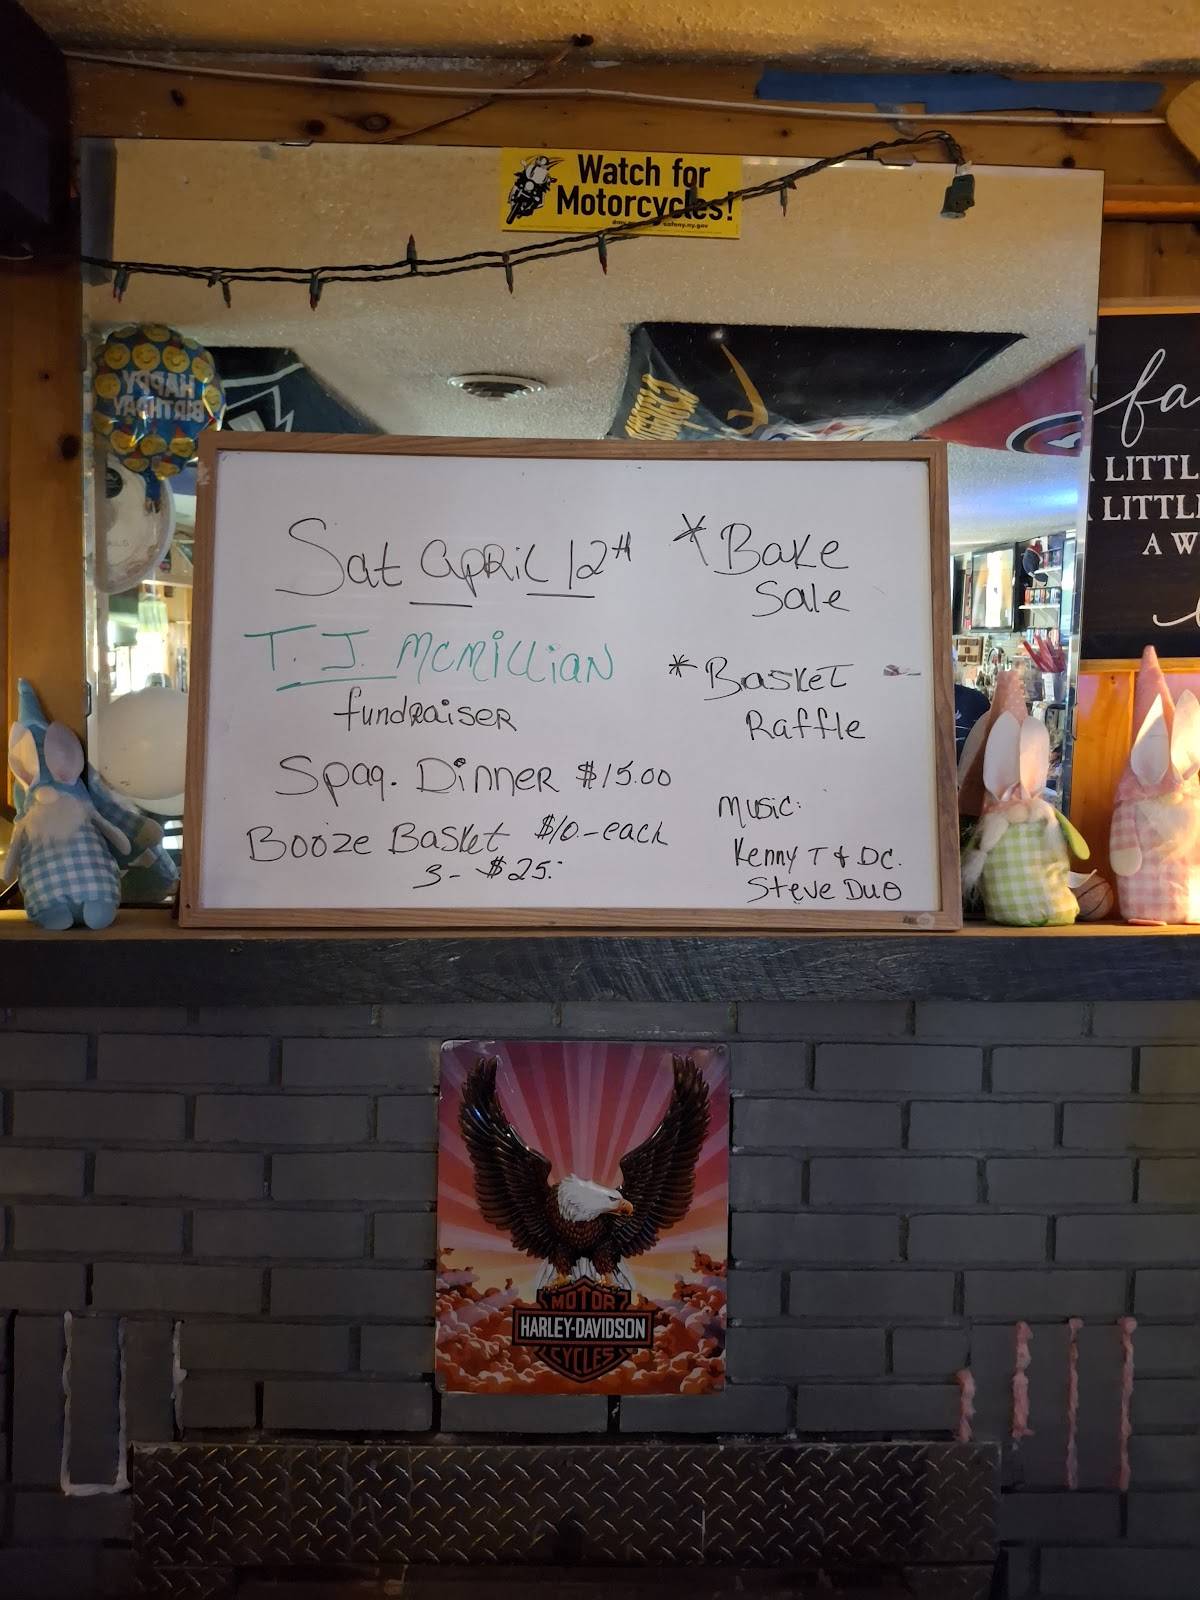 Watch for
Motorcycles!
HAPPY
BIRTHDAY
fa
A LITTL
A LITTL
A W
Sat April 12th
T.J. McMillian
fundraiser
Spag. Dinner $15.00
Booze Basket $10.-each
3- $25.
*Bake
Sale
*Basket
Raffle
Music:
Kenny T & DC.
Steve Duo
MOTOR
HARLEY-DAVIDSON
CYCLES